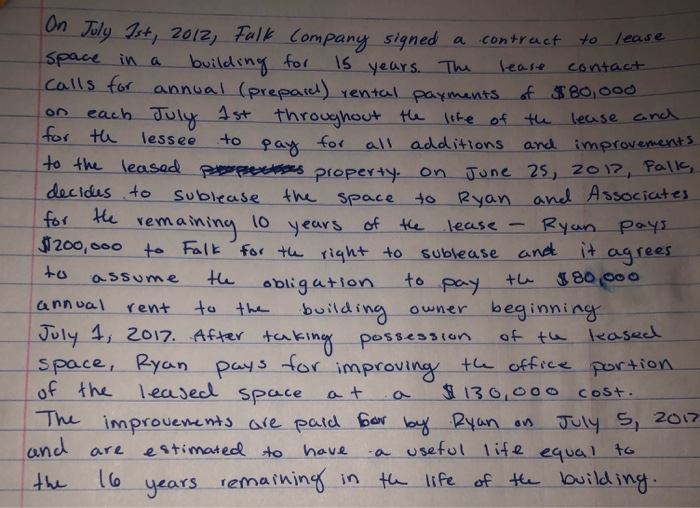 On July 1st, 2012, Falk Company signed a contract to lease
space in a building for 15 years. The lease contact
calls for annual (prepaid) rental payments of $80,000
on each July 1st throughout the life of the lease and
for the lessee to pay for all additions and improvements
to the leased property. On June 25, 2017, Falk,
decides to sublease the space to Ryan and Associates
for the remaining 10 years of the lease - Ryan pays
$200,000 to Falk for the right to sublease and it agrees
to assume the obligation to pay the $80,000
annual rent to the building owner beginning
July 1, 2017. After taking possession of the leased
space, Ryan pays for improving the office portion
of the leased space at a $130,000 cost.
The improvements are paid for by Ryan on July 5, 2017
and are estimated to have a useful life equal to
the 16 years remaining in the life of the building.